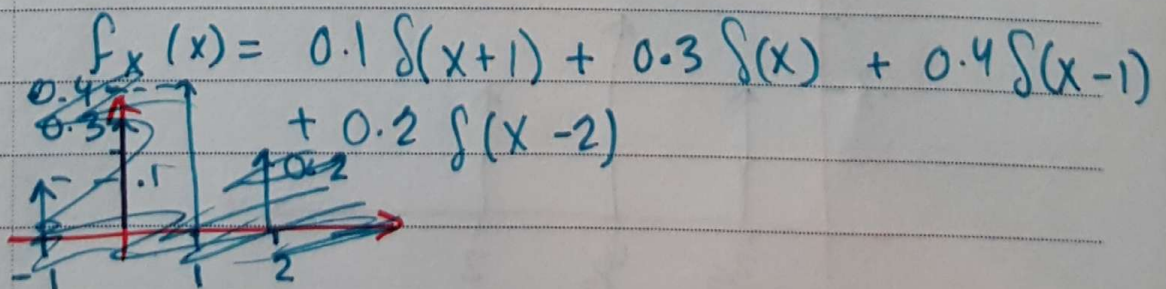 fx(x) = 0.1 δ(x+1) + 0.3 δ(x) + 0.4 δ(x-1)
+ 0.2 δ(x-2)
0.4
0.3
0.2
.1
-1 1 2